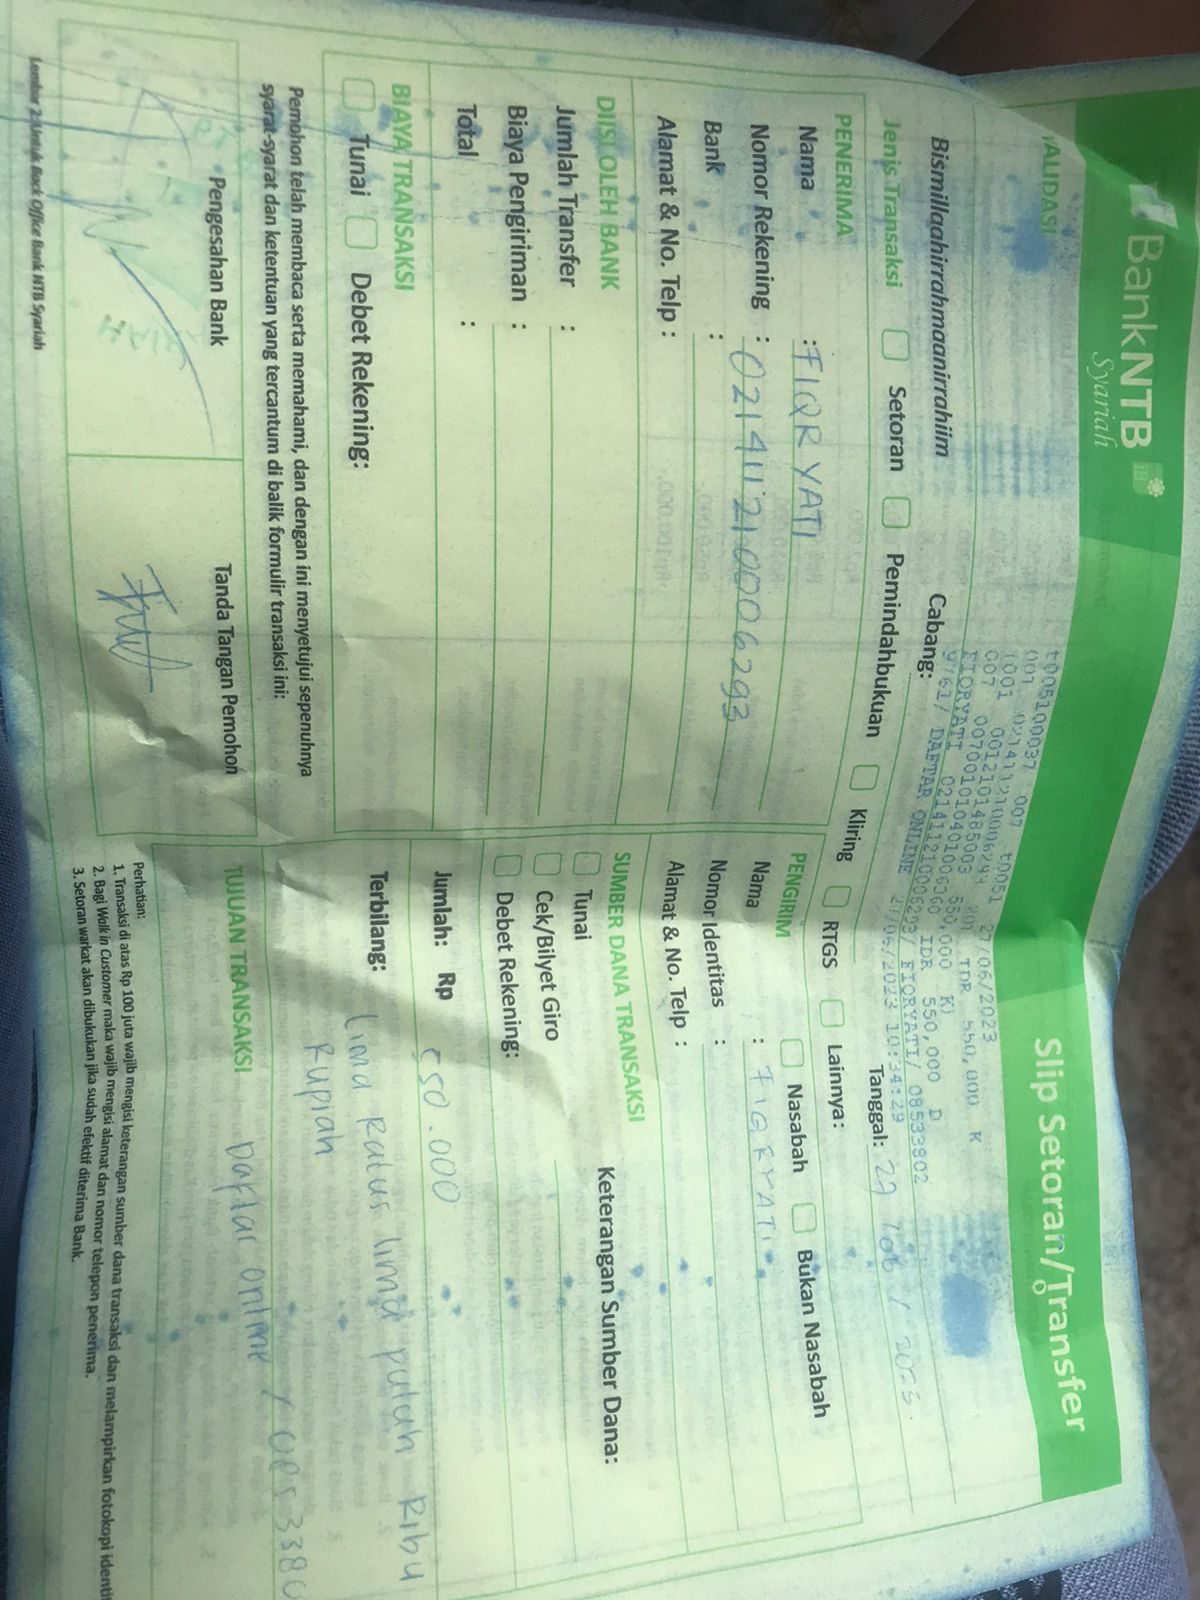 BankNTB
Syariah
Slip Setoran/Transfer
VALIDASI
t0051 27/06/2023
Bismillaahirrahmaanirrahiim
Cabang:
Tanggal: 27
Jenis Transaksi
Setoran
Pemindahbukuan
Kliring
RTGS
Lainnya:
PENERIMA
Nama : FIQRYATI
Nomor Rekening : 021411210006293
Bank :
Alamat & No. Telp :
PENGIRIM
Nasabah
Bukan Nasabah
Nama : FIQRYATI
Nomor Identitas :
Alamat & No. Telp :
DIISI OLEH BANK
Jumlah Transfer :
Biaya Pengiriman :
Total :
SUMBER DANA TRANSAKSI
Tunai
Cek/Bilyet Giro
Debet Rekening:
Keterangan Sumber Dana:
BIAYA TRANSAKSI
Tunai
Debet Rekening:
Jumlah: Rp 550.000
Terbilang: Lima Ratus lima puluh Ribu
Rupiah
Pemohon telah membaca serta memahami, dan dengan ini menyetujui sepenuhnya
syarat-syarat dan ketentuan yang tercantum di balik formulir transaksi ini:
Pengesahan Bank
Tanda Tangan Pemohon
TUJUAN TRANSAKSI Daftar online /
Perhatian:
1. Transaksi di atas Rp 100 juta wajib mengisi keterangan sumber dana transaksi dan melampirkan fotokopi identi
2. Bagi Walk in Customer maka wajib mengisi alamat dan nomor telepon penerima.
3. Setoran warkat akan dibukukan jika sudah efektif diterima Bank.
Lembar 2: Untuk Back Office Bank NTB Syariah